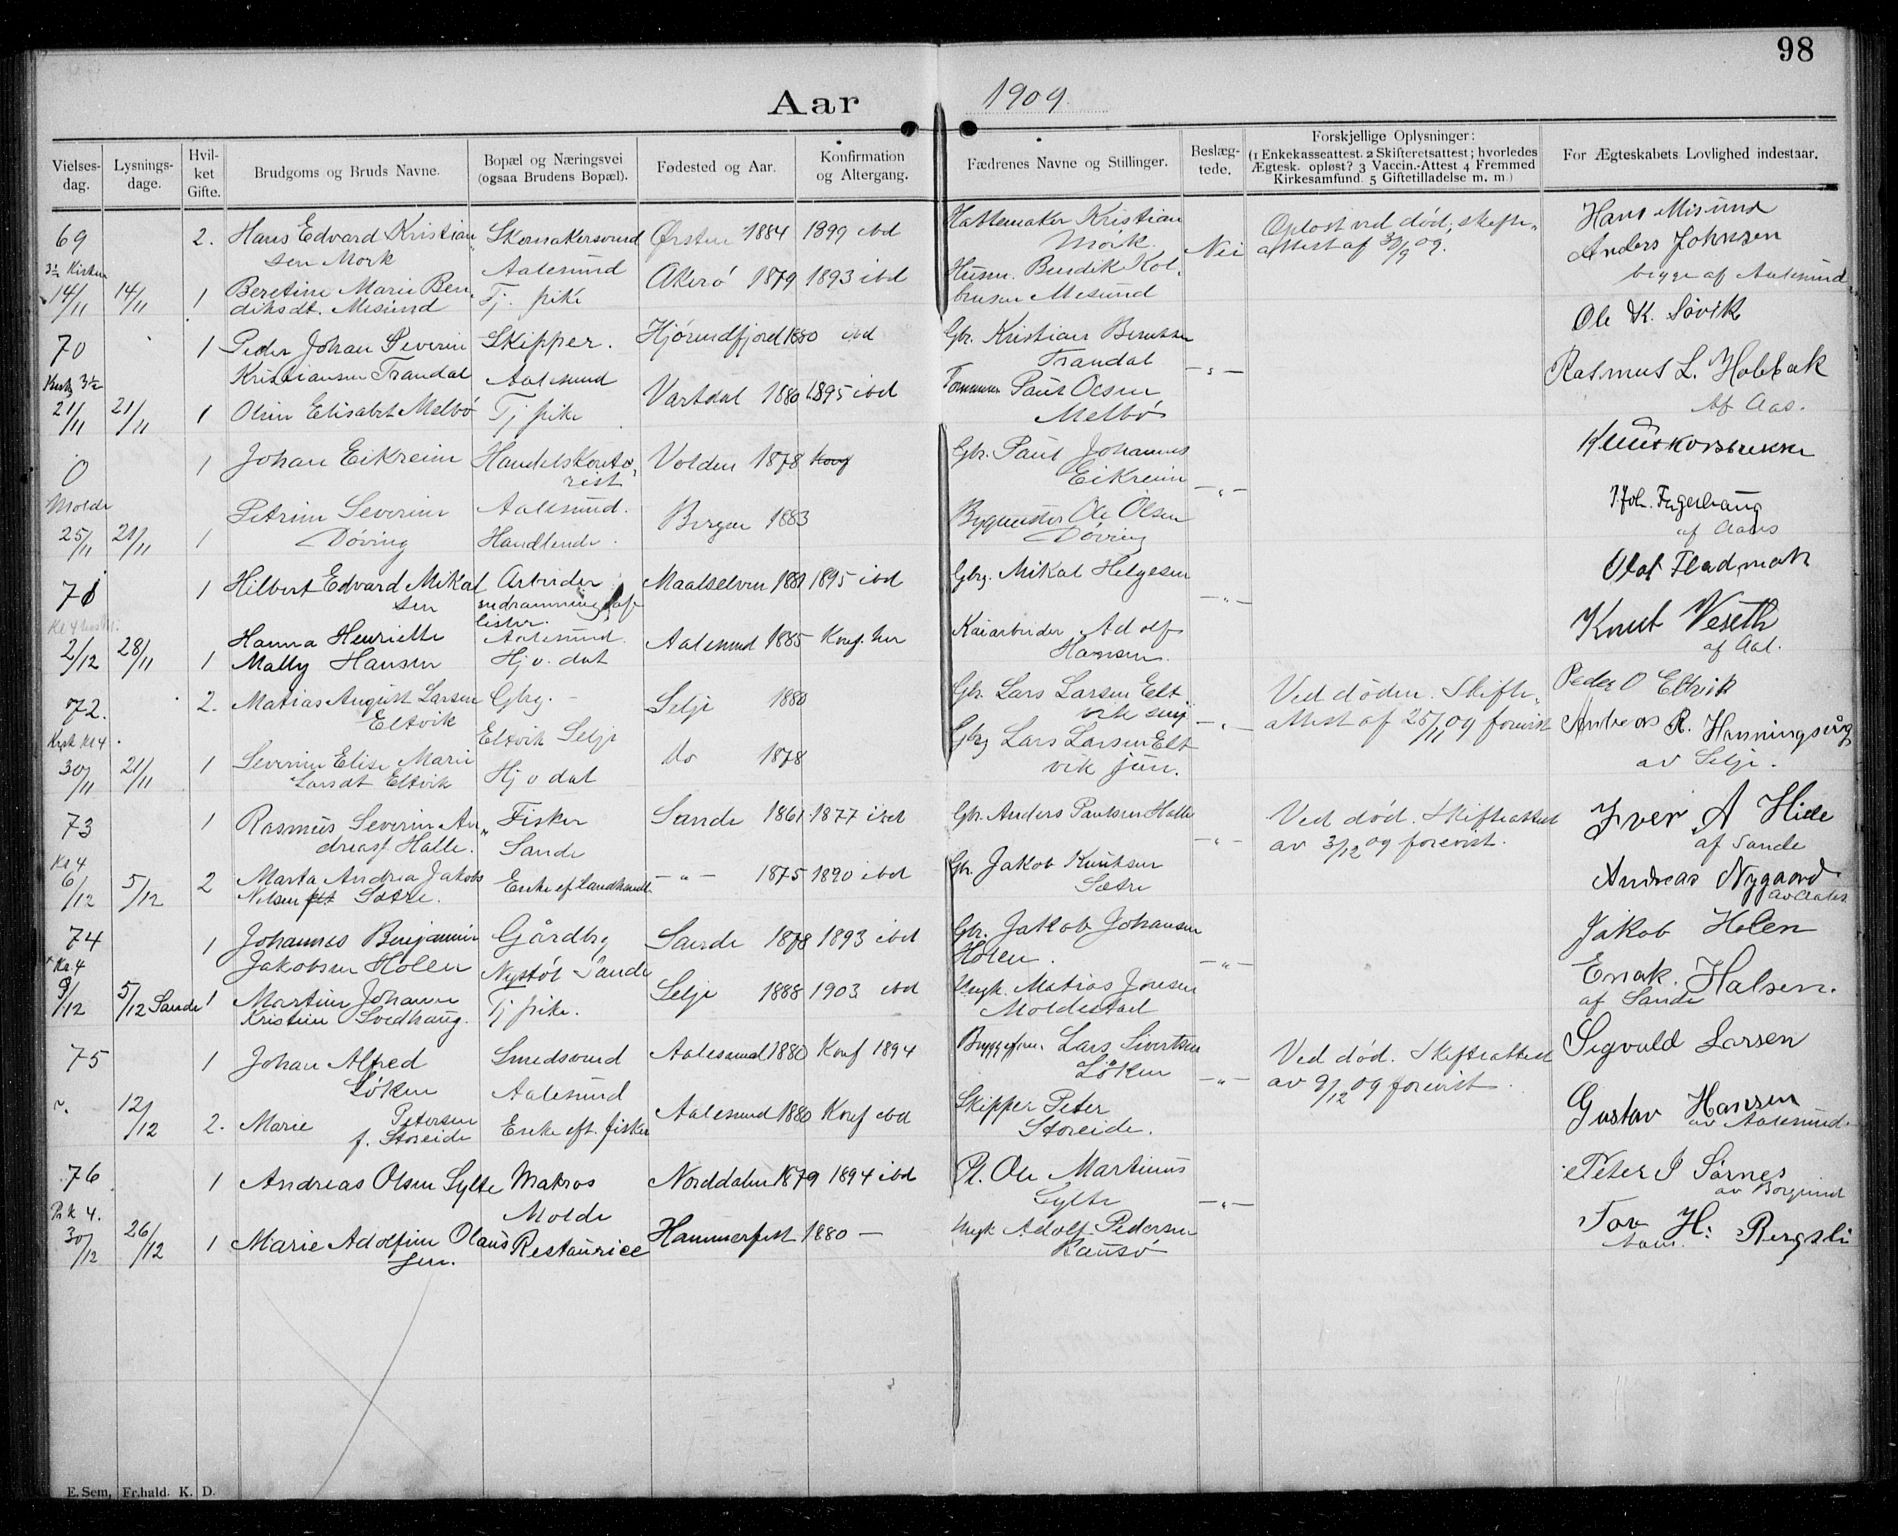 98
Aar 1909.
Vielses-dag. Lysnings-dage. Hvil-ket Gifte. Brudgoms og Bruds Navne. Bopæl og Næringsvei (ogsaa Brudens Bopæl). Fødested og Aar. Konfirmation og Altergang. Fædrenes Navne og Stillinger. Beslæg-tede. Forskjellige Oplysninger: (1 Enkekasseattest. 2 Skifteretsattest; hvorledes Ægtesk. opløst? 3 Vaccin.-Attest 4 Fremmed Kirkesamfund. 5 Giftetilladelse m. m.) For Ægteskabets Lovlighed indestaar.
69 2. Hans Edvard Kristian Skomakersvend Ørsten 1884 1899 ibd Hattemaker Kristian Opløst ved død, skifte- Hans Misund
sen Mork Aalesund Mörk. Nei attest af 30/9 09. Anders Johnsen
3½ Kirken begge af Aalesund
14/11 14/11 1 Beretine Marie Ben Tj. pike Akerö 1879 1893 ibd Husm. Bendik Kol
diksdt. Misund Misund
70 1 Peder Johan Severin Skipper. Hjørundfjord 1880 ibd Gbr. Kristian Berntsen Ole K. Sövik
Kristiansen Trandal Aalesund Trandal -"- Rasmus L. Holebak
Kirk 3½ Af Aas.
21/11 21/11 1 Olsen Elisabet Melbö Tj pike Vartdal 1880 1895 ibd Tømmerm. Paul Olsen
Melbö
0 1 Johan Eikreim Handelskonto Volden 1878 Gbr. Paul Johannes
rist Eikreim -"-
Molde Petrine Severine Aalesund. Bergen 1883 Bygmester Ole Olsen Joh. Fagerhaug
25/11 21/11 1 Döving Handlende. Döving
71 1 Hilbert Edvard Mikal Arbeider Maalselven 1881 1895 ibd Gbrg. Mikal Helgesen Olaf Fladmark
sen -"-
2/12 28/11 1 Hanna Henriette Aalesund. Aalesund 1885 Konf. her Kaiarbeider Adolf Knut Veseth
Mally Hansen Hj o. dat Hansen. af Aal.
72. 2. Matias August Larsen Gbrg. - Selje 1880 Gbr. Lars Larsen Elt Ved døden. Skifte- Peder O Eltvik
Eltvik Eltvik Selje vik -"- attest af 25/11 09 forevist Andreas R. Hanningsvåg
Kirk Kl 4 av Selje.
30/11 21/11 1 Severine Elise Marie Hj o dat do 1878 Gbrg Lars Larsen Elt
Larsdt Eltvik vik jun.
73 1 Rasmus Severin An Fisker Sande 1861 1877 ibd Gbr. Anders Paulsen Halle Ved død. Skifteattest Iver A Hide
dreas. Halle. Sande -"- av 3/12 09 forevist. af Sande
Kl 4
6/12 5/12 2 Marta Andrea Jakobs Enke ef Landhandl. -"- 1875 1890 ibd Gbr. Jakob Knutsen Andreas Nygaard
Nilsen Sætre. Sætre
74 1 Johannes Benjamin Gårdbrg Sande 1878 1893 ibd Gbr. Jakob Johansen Jakob Holen
Jakobsen Holen Nystöl Sande Holen. -"-
Kl. 4
9/12 5/12 Sande 1 Martine Johanne Tj pike. Selje 1888 1903 ibd Ungk. Matias Jonsen Enak. Halsen.
Kristine Svedhaug. Moldestad af Sande
75 1 Johan Alfred Smedsvend Aalesund 1880 Konf 1894 Bryggeform. Lars Sivertsen Ved død. Skifteattest Sigvald Larsen
Löken Aalesund Löken -"- av 9/12 09 forevist.
12/12 2. Marie Petersen Enke eft. fisker Aalesund 1880 Konf ibd Skipper Peter Gustav Hansen
f. Storeide Storeide. av Aalesund.
76 1 Andreas Olsen Sylte Matros Norddalen 1879 1894 ibd Pl. Ole Martinus Peter J Sörnes
Molde Sylte -"- av Borgund
Kl 4.
30/12 26/12 1 Marie Adolfine Olaus Restaurice Hammerfest 1880 - Ungk Adolf Pedersen Tov H. Bergsli
sen. Rausö
E. Sem, Fr.hald. K. D.